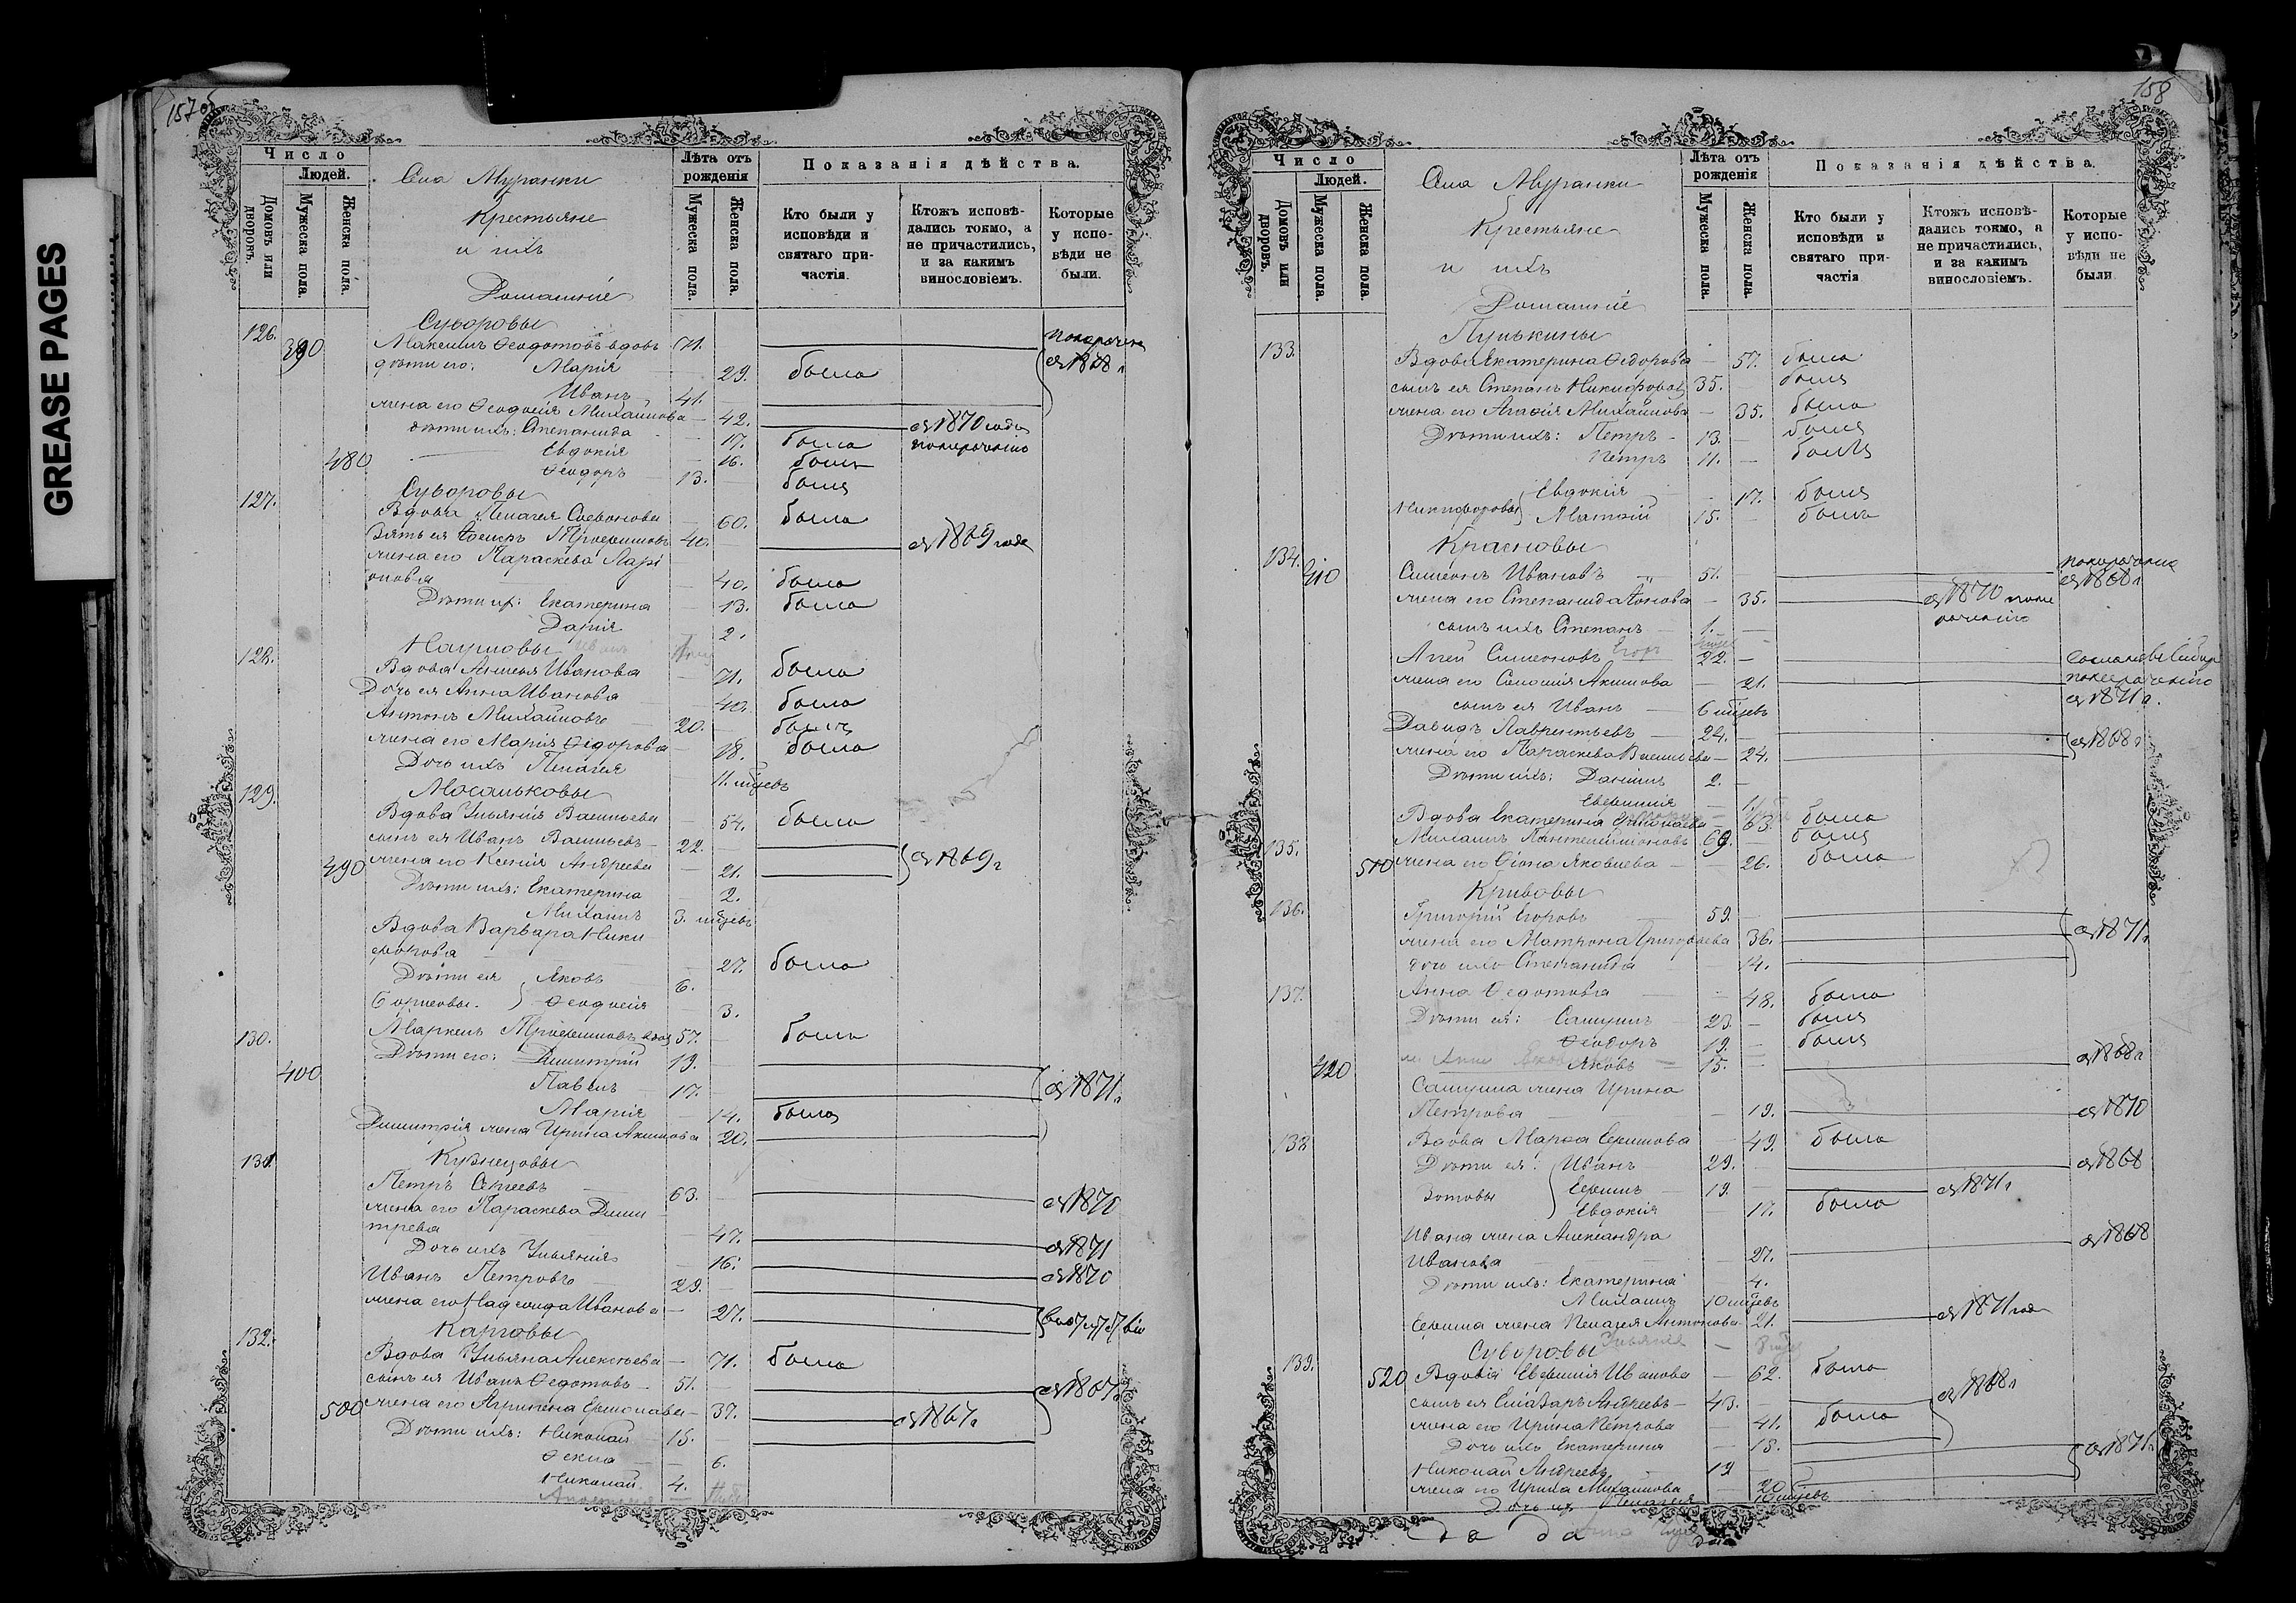 GREASE PAGES
157об
Число
Людей.
Домовъ или дворовъ.
Мужеска пола.
Женска пола.
Села Муранки
Крестьяне
и ихъ
Домашніе
Лѣта отъ рожденія
Мужеска пола.
Женска пола.
Показанія дѣйства.
Кто были у исповѣди и святаго причастія.
Ктожъ исповѣдались токмо, а не причастились, и за какимъ винословіемъ.
Которые у исповѣди не были.
126. Суворовы
390 Максимъ Феодотовъ вдовъ 71.
дѣти его: Марія 29. была
съ 1868 г
Иванъ 41.
жена его Феодосія Михайлова 42. съ 1870 года
дѣти ихъ: Степанида 17. была
Евдокія 16. была
480 Феодоръ 13. былъ
127. Суворовы
Вдова Пелагея Софонова 60. была
Зять ея Трофимовъ 40. съ 1869 года
жена его Параскева Ларі
онова 40. была
Дѣти их: Екатерина 13. была
Дарія 2.
128. Наумовы
Вдова Анисья Иванова 71. была
Дочь ея Анна Иванова 40. была
Антонъ Михайловъ 20. былъ
жена его Марія Феодорова 18. была
Дочь ихъ Пелагея 11. мѣцевъ
129. Мосальковы
Вдова Ульянія Васильева 54. была
сынъ ея Иванъ Васильевъ 22.
490 жена его Ксенія Андреева 21. съ 1869 г
Дѣти ихъ: Екатерина 2.
Михаилъ 3. мѣцевъ
Вдова Варвара Ники
форова 27. была
Дѣти ея Яковъ 6.
Феодосія 3.
130. Маркелъ Трофимовъ вдов 57. былъ
Дѣти его: Димитрій 19.
400 Павелъ 17. съ 1871 г
Марія 14. была
Димитрія жена Ирина Акимова 20.
131. Кузнецовы
Петръ Сергеевъ 63. съ 1870
жена его Параскева Дими
тріева 47. съ 1871
Дочь ихъ Ульянія 16. съ 1870
Иванъ Петровъ 29.
жена его Надежда Иванова 27.
132. Карповы
Вдова Ульяна Алексеева 71. была
сынъ ея Иванъ Федотовъ 51. съ 1867 г
500 жена его Агрипена Ермолаева 37. съ 1867 г
Дѣти ихъ: Николай 15.
Фекла 6.
Николай 4.
158
Число
Людей.
Домовъ или дворовъ.
Мужеска пола.
Женска пола.
Села Муранки
Крестьяне
и ихъ
Домашніе
Лѣта отъ рожденія
Мужеска пола.
Женска пола.
Показанія дѣйства.
Кто были у исповѣди и святаго причастія
Ктожъ исповѣдались токмо, а не причастились, и за какимъ винословіемъ.
Которые у исповѣди не были
133. Пунькины
Вдова Екатерина Феодорова 57. была
сынъ ея Степанъ Никифоров 35. былъ
жена его Агафія Михайлова 35. была
Дѣти ихъ: Петръ 13. былъ
Петръ 11. былъ
Евдокія 17. была
Никифоровы Матвій 15. былъ
134. Красновы
410 Симеонъ Ивановъ 51. съ 1868 г
жена его Степанида 35. съ 1870
сынъ ихъ Степанъ 1.
Симеоновъ 22.
жена его Соломія Акимова 21.
сынъ ея Иванъ 6 мѣцевъ съ 1871 г.
Давидъ Лаврентьевъ 24. съ 1868 г
жена его Параскева Васильева 24.
Дѣти ихъ: Даніилъ 2.
Евфимія
Вдова Екатерина Ермолаева 63. была
135. Михаилъ Пантелеймоновъ 69. былъ
510 жена его Яковлева 26. была
Кривовы
136. Григорій Егоровъ 59.
жена его Матрона Григорьева 36. съ 1871 г
дочь ихъ Степанида 14.
137. Анна Федотова 48. была
Дѣти ея: Самуилъ 23. былъ
Феодоръ 19. былъ
420 Яковъ 15. съ 1868 г
Самуила жена Ирина
Петрова 19. съ 1870
138. Вдова Марфа Ефимова 49. была
Дѣти ея: Иванъ 29. съ 1868
Зотовы Ефимъ 19. съ 1871 г
Евдокія 17. была
Ивана жена Александра
Иванова 27. съ 1868
Дѣти ихъ: Екатерина 4.
Михаилъ 10 мѣцевъ
Ефима жена Пелагея Антонова 21. съ 1871 года
Суворовы
139. 520 Вдова Евфимія Иванова 62. была
сынъ ея Елиазаръ Андреевъ 43. съ 1868 г
жена его Ирина Петрова 41. была
Дочь ихъ Екатерина 18.
Николай Андреевъ 19 съ 1871 г.
жена его Ирина Михайлова 20
Дочь их Пелагея